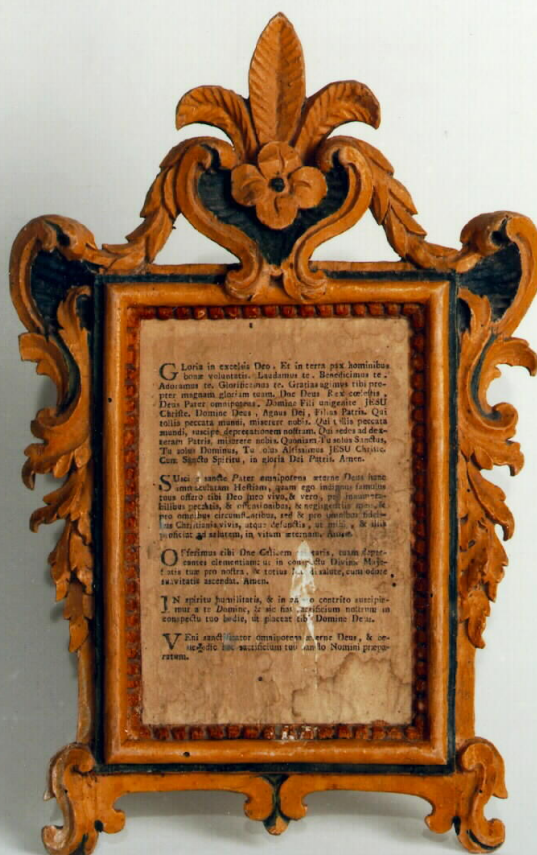 GLoria in excelsis Deo. Et in terra pax hominibus
bonæ voluntatis. Laudamus te. Benedicimus te.
Adoramus te. Glorificamus te. Gratias agimus tibi pro-
pter magnam gloriam tuam. Dne Deus Rex cœlestis,
Deus Pater omnipotens. Domine Fili unigenite JESU
Christe. Domine Deus, Agnus Dei, Filius Patris. Qui
tollis peccata mundi, miserere nobis. Qui tollis peccata
mundi, suscipe deprecationem nostram. Qui sedes ad dex-
teram Patris, miserere nobis. Quoniam Tu solus Sanctus,
Tu solus Dominus, Tu solus Altissimus JESU Christe.
Cum Sancto Spiritu, in gloria Dei Patris. Amen.
SUsci sancte Pater omnipotens æterne Deus hanc
immaculatam Hostiam, quam ego indignus famulus
tuus offero tibi Deo meo vivo, & vero, pro innumera-
bilibus peccatis, & offensionibus, & negligentiis meis, &
pro omnibus circumstantibus, sed & pro omnibus fideli-
bus Christianis vivis, atque defunctis, ut mihi, & illis
proficiat ad salutem, in vitam æternam. Amen.
OFferimus tibi Dne Calicem salutaris, tuam depre-
cantes clementiam: ut in conspectu Divinæ Maje-
statis tuæ pro nostra, & totius salute, cum odore
suavitatis ascendat. Amen.
IN spiritu humilitatis, & in contrito suscipia-
mur a te Domine, & sic fiat sacrificium nostrum in
conspectu tuo hodie, ut placeat tibi Domine Deus.
VEni sanctificator omnipotens æterne Deus, & be-
nedic hoc sacrificium tuo Nomini præpa-
ratum.